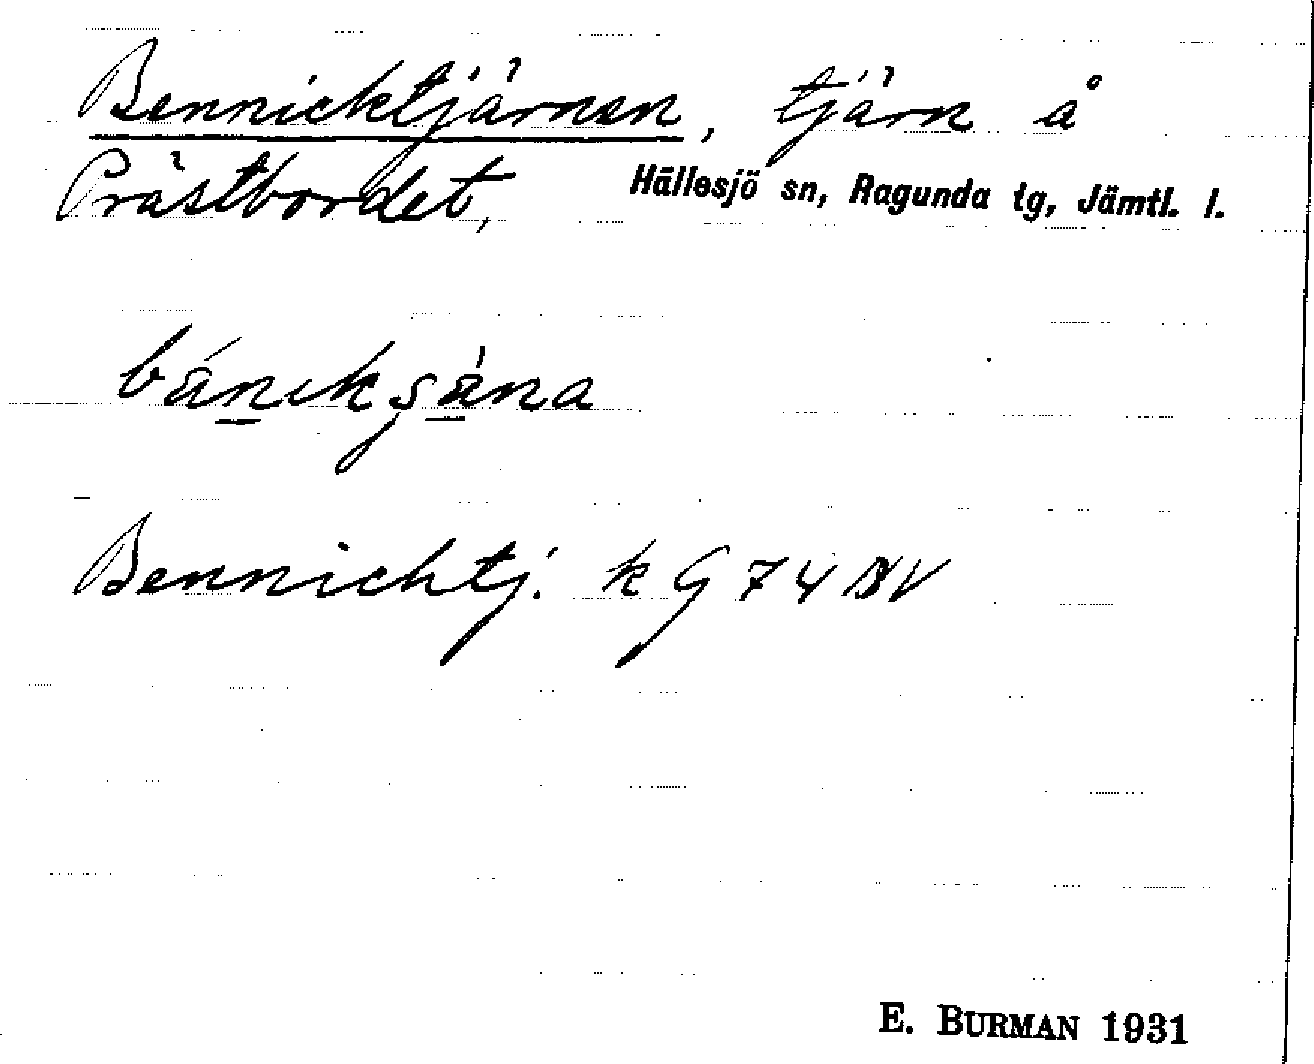 Bennicktjärnen, tjärn å
Prästbordet, Hällesjö sn, Ragunda tg, Jämtl. l.
Bennichtj. k G 74 NV
E. BURMAN 1931